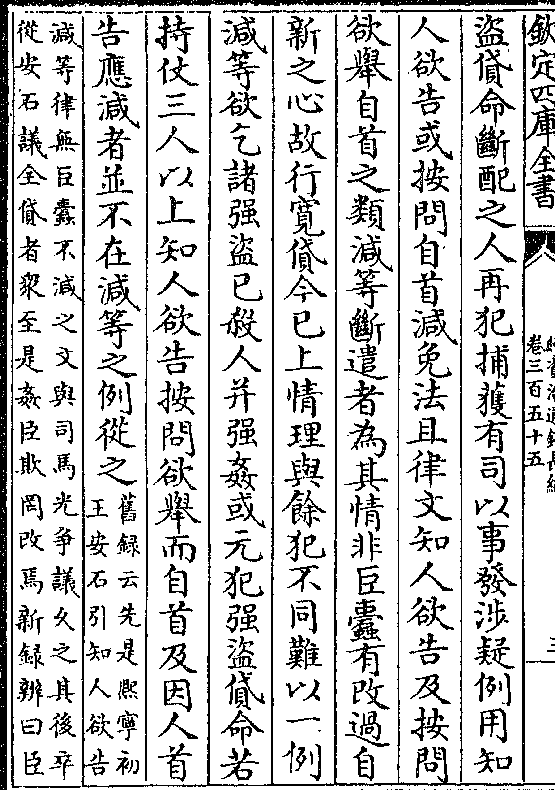 欽定四庫全書
卷三百五十五
三
盜貸命斷配之人再犯捕獲有司以事發渉疑例用知
人欲告或按問自首減免法且律文知人欲告及按問
欲舉自首之類減等斷遣者為其情非巨蠹有改過自
新之心故行寛貸今已上情理與餘犯不同難以一例
減等欲乞諸强盜已殺人并强姦或元犯强盜貸命若
持仗三人以上知人欲告按問欲舉而自首及因人首
告應減者並不在減等之例從之
舊録云先是熈寧初
王安石引知人欲告
減等律無巨蠹不減之文與司馬光爭議久之其後卒
從安石議全貸者衆至是姦臣欺罔改焉新録辨曰臣